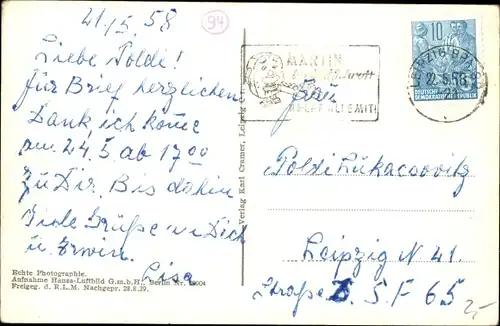 21./5.58
94
Liebe Poldi!
für Brief herzlichen
Dank, ich kome
am 24.5 ab 17 00
zu Dir. Bis dahin
viele Grüße an Dich
u. Erwin.
Lisa
Echte Photographie.
Aufnahme Hansa-Luftbild G.m.b.H., Berlin Nr.
Freigeg. d. R.L.M. Nachgepr. 28.8.39.
Verlag Karl Cramer, Leipzig
MARTIN
HELFT ALLE MIT!
10
DEUTSCHE
DEMOKRATISCHE REPUBLIK
LEIPZIG
22.5.58
Frau
Poldi Lukacsovitz
Leipzig N 41
Straße Z. S. F 65
2,-